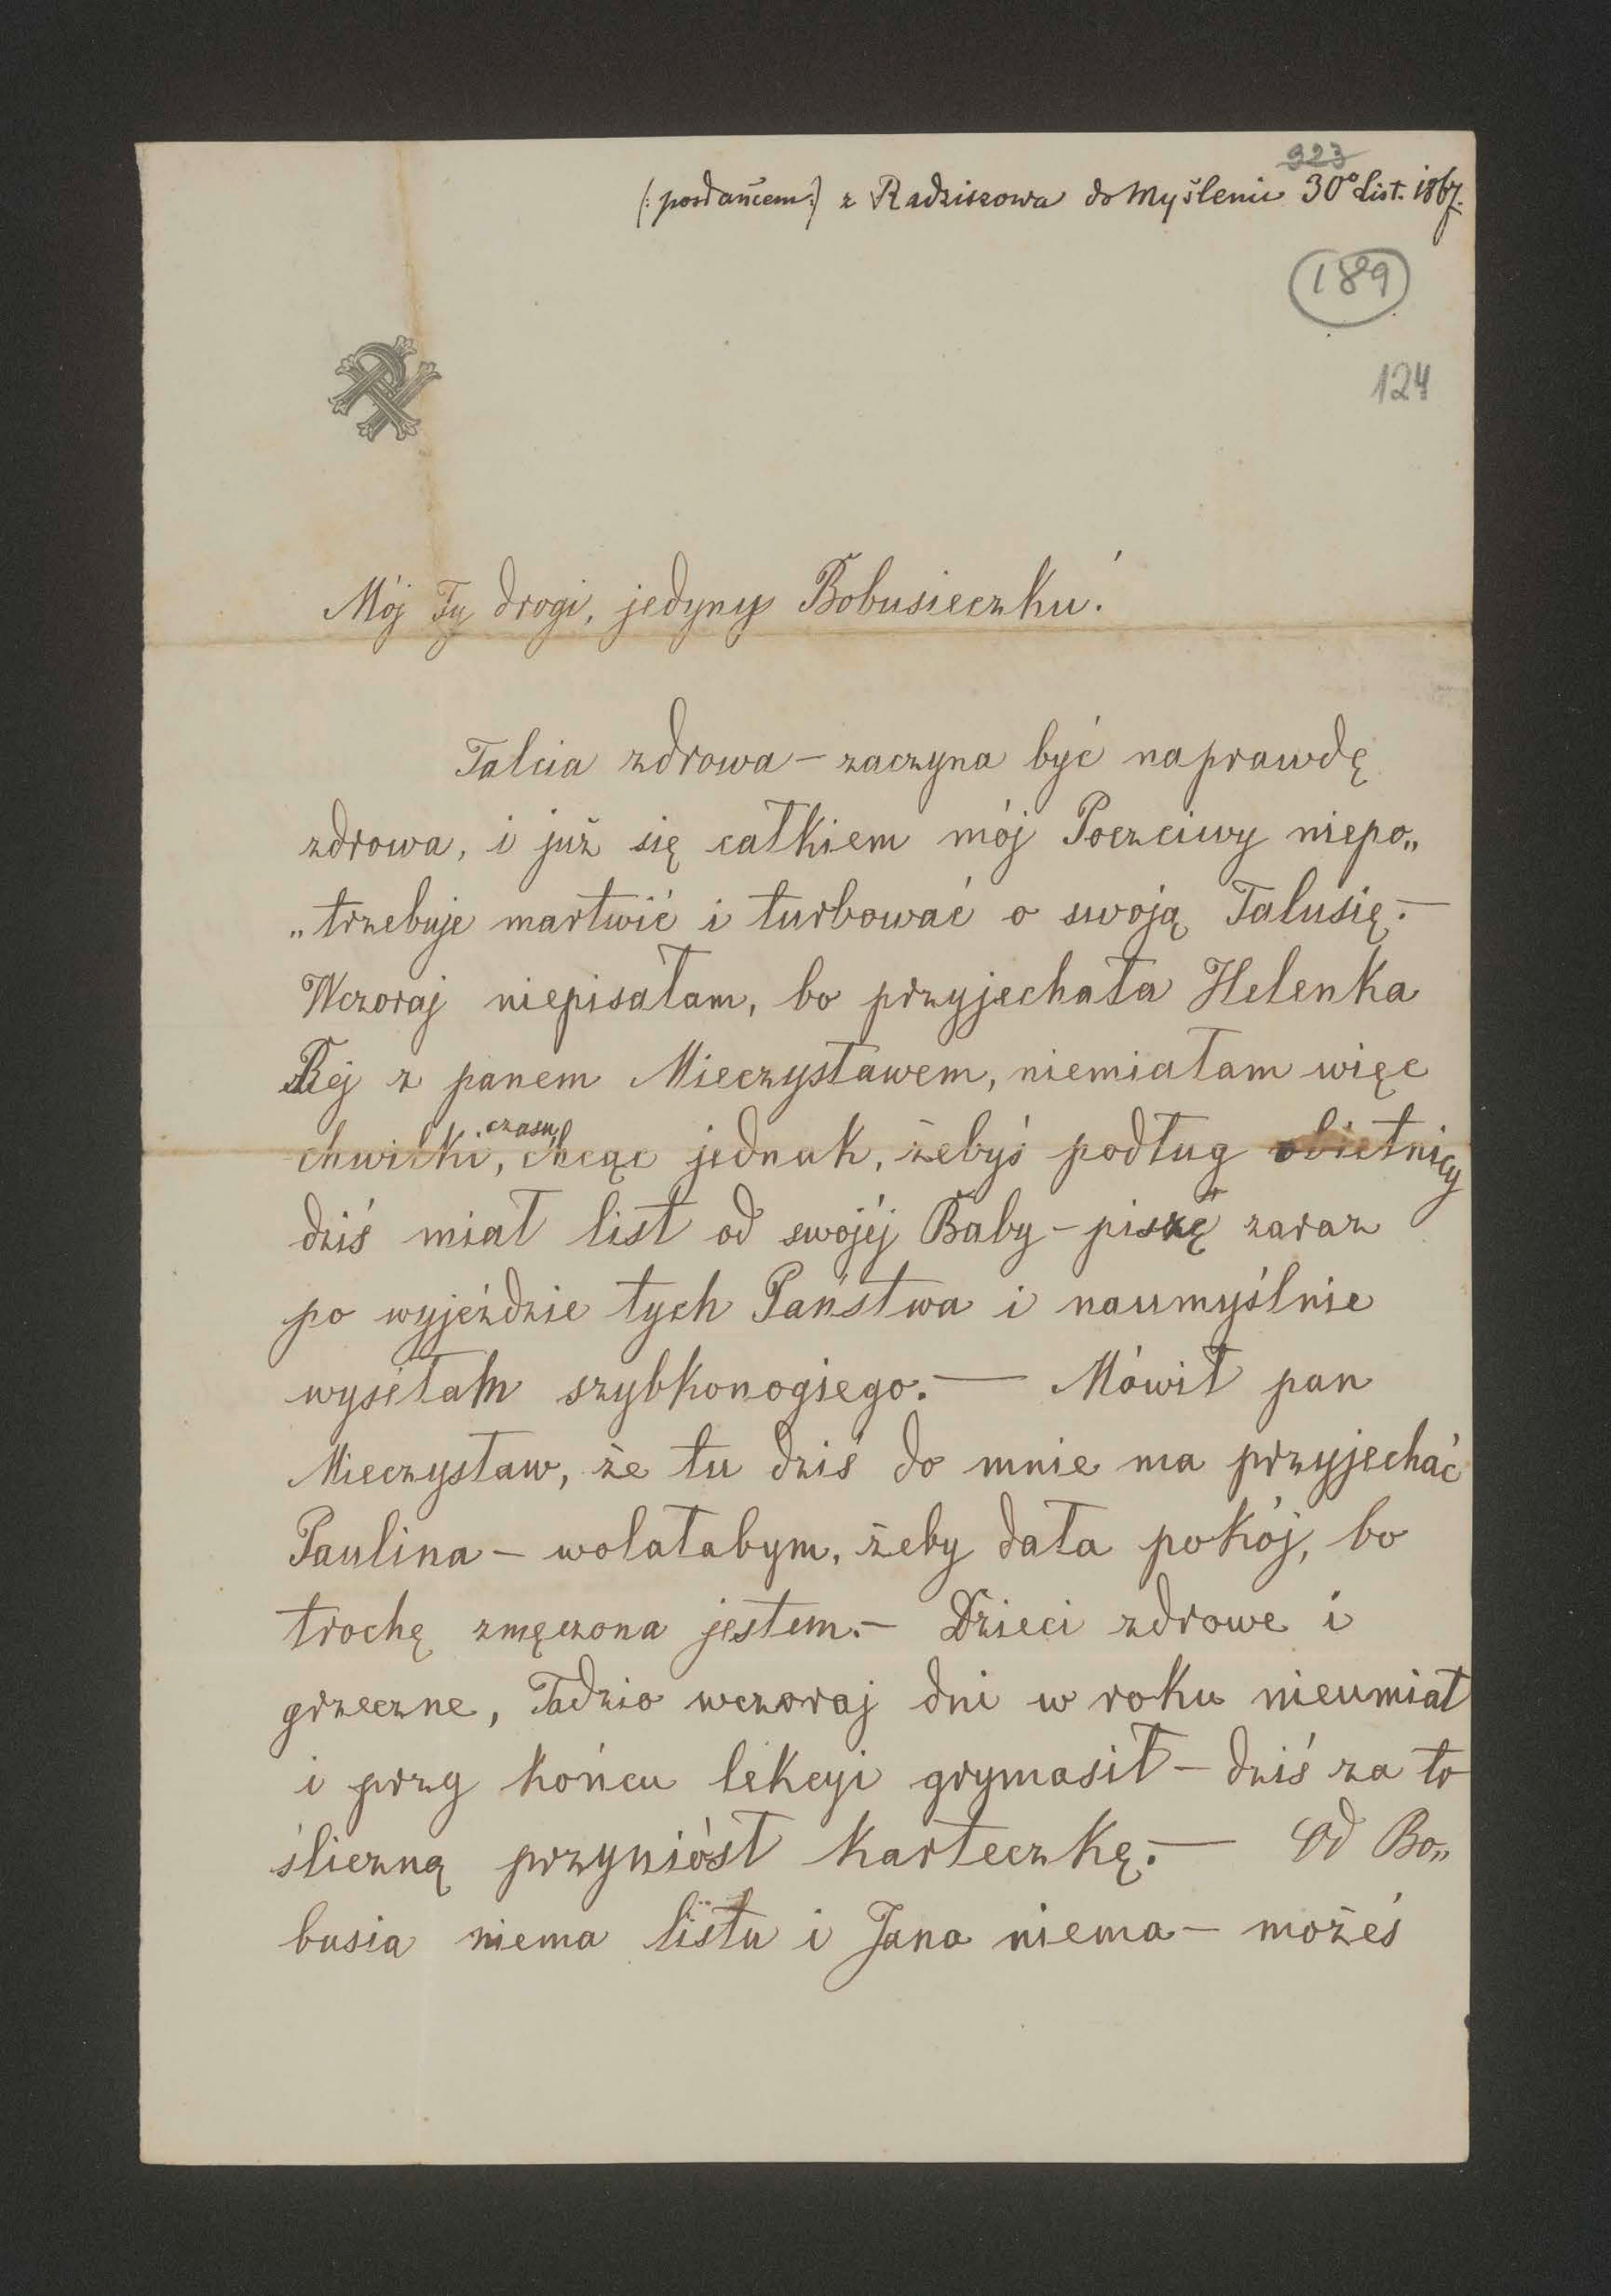 323
(: posłańcem :) z Radziszowa do Myślenic 30º List. 1867.
189
124
Mój Ty drogi, jedyny Bobusieczku!
Talcia zdrowa – zaczyna być naprawdę
zdrowa, i już się całkiem mój Poczciwy niepo„
„trzebuje martwić i turbować o swoją Talusię. –
Wczoraj niepisałam, bo przyjechała Helenka
Rej z panem Mieczysławem, niemiałam więc
chwilki czasu, chcąc jednak, żebyś podług obietnicy
dziś miał list od swojéj Baby – piszę zaraz
po wyjeździe tych Państwa i naumyślnie
wysełam szybkonogiego. — Mówił pan
Mieczysław, że tu dziś do mnie ma przyjechać
Paulina – wolałabym, żeby dała pokój, bo
trochę zmęczona jestem. – Dzieci zdrowe i
grzeczne, Tadzio wczoraj dni w roku nieumiał
i przy końcu lekcyi grymasił – dziś za to
śliczną przyniósł karteczkę. — Od Bo„
busia niema listu i Jana niema – możeś